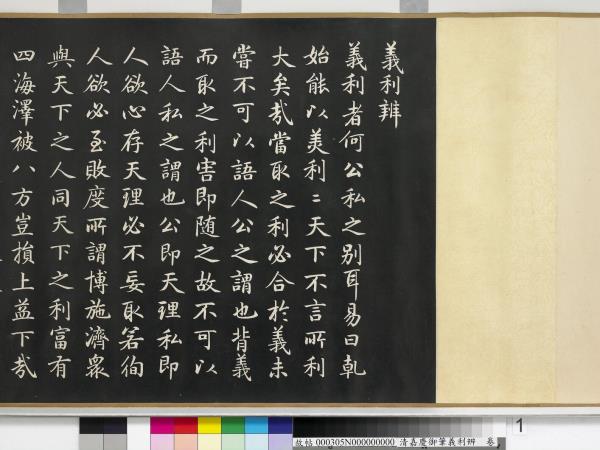 義利辨
義利者何公私之別耳易曰乹
始能以美利〻天下不言所利
大矣哉當取之利必合於義未
嘗不可以語人公之謂也背義
而取之利害即随之故不可以
語人私之謂也公即天理私即
人欲心存天理必不妄取若徇
人欲必至敗度所謂博施濟衆
與天下之人同天下之利富有
四海澤被八方豈損上益下哉
1
故帖 000305N000000000 清嘉慶御筆義利辨 卷